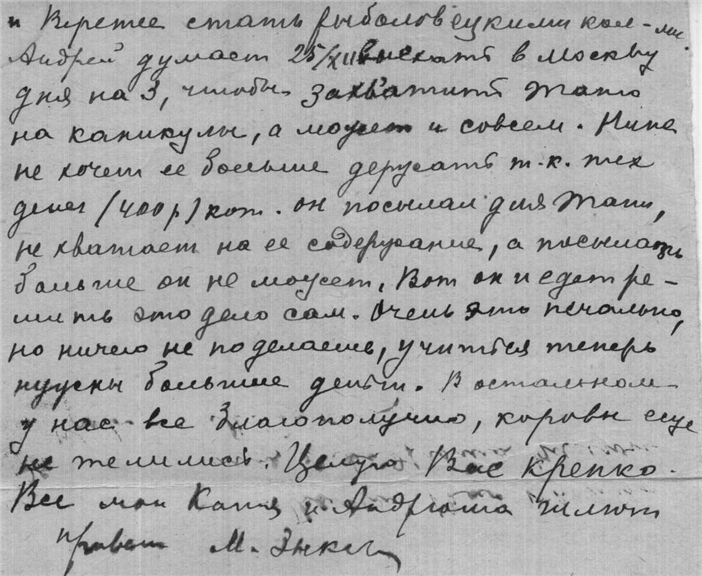 и Вретее стать рыболовецкими кол-ми.
Андрей думает 25/XII выехать в Москву
дня на 3, чтобы захватить Таню
на каникулы, а может и совсем. Нина
не хочет ее больше держать т.к. тех
денег (400 р) кот. он посылал для Тани,
не хватает на ее содержание, а посылать
больше он не может. Вот он и едет ре-
шить это дело сам. Очень это печально,
но ничего не поделаешь, учиться теперь
нужны большие деньги. В остальном
у нас все благополучно, коровы еще
не телились. Целую Вас крепко.
Все мои Катя и Андрюша шлют
привет М.